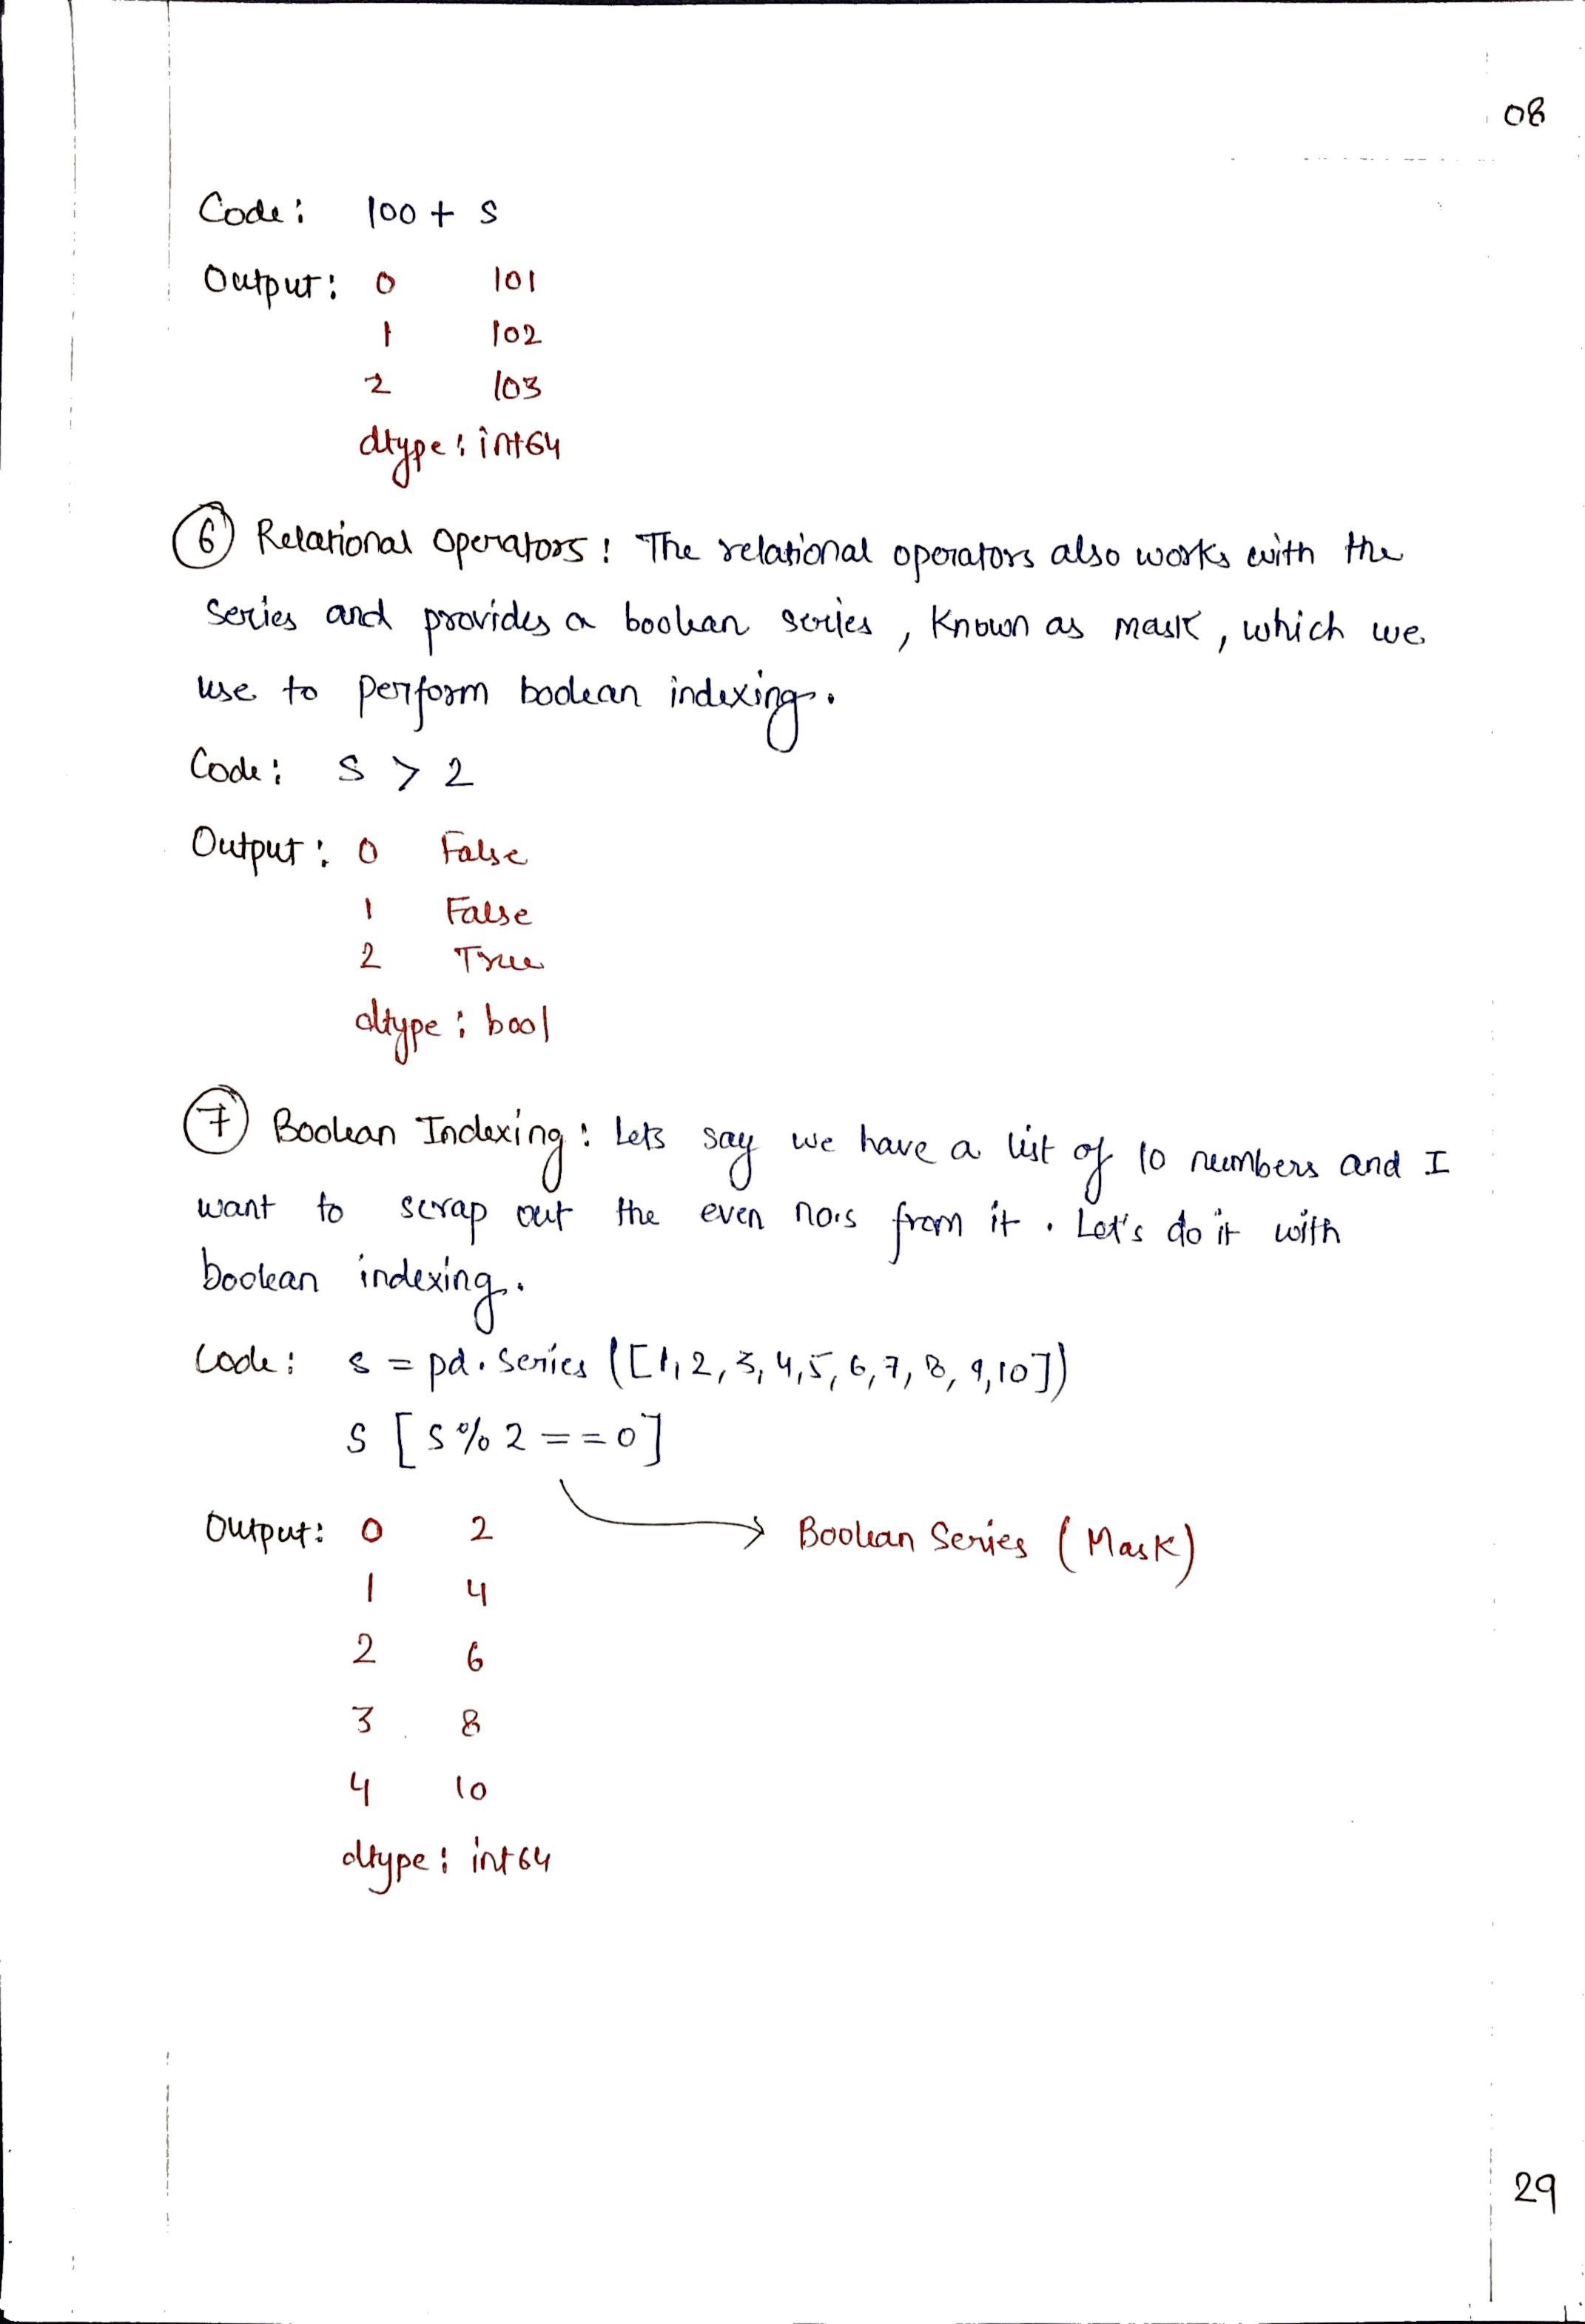 08
Code: 100 + s
Output: 0 101
1 102
2 103
dtype: int64
6 Relational Operators: The relational operators also works with the
series and provides a boolean series, known as mask, which we
use to perform boolean indexing.
Code: s > 2
Output: 0 False
1 False
2 True
dtype: bool
7 Boolean Indexing: Lets say we have a list of 10 numbers and I
want to scrap out the even no.s from it. Let's do it with
boolean indexing.
Code: s = pd.Series ([1,2,3,4,5,6,7,8,9,10])
s [s%2 ==0]
Output: 0 2 → Boolean Series (Mask)
1 4
2 6
3 8
4 10
dtype: int64
29